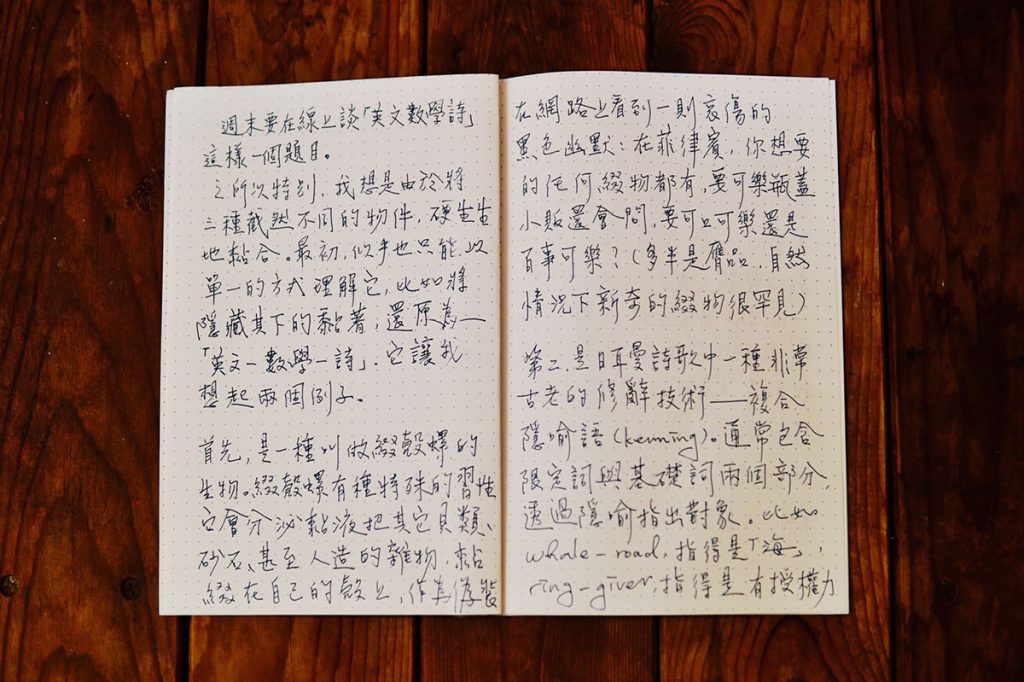 週末要在線上談「英文數學詩」
這樣一個題目。
之所以特別，我想是由於將
三種截然不同的物件，硬生生
地黏合。最初，似乎也只能以
單一的方式理解它，比如將
隱藏其下的黏著，還原為—
「英文－數學－詩」。它讓我
想起兩個例子。
首先，是一種叫做綴殼螺的
生物。綴殼螺有種特殊的習性
它會分泌黏液把其它貝類、
砂石、甚至人造的雜物，黏
綴在自己的殼上，作為偽裝
在網路上看到一則哀傷的
黑色幽默：在菲律賓，你想要
的任何綴物都有，要可樂瓶蓋
小販還會問，要可口可樂還是
百事可樂？（多半是贗品，自然
情況下新奇的綴物很罕見）
第二，是日耳曼詩歌中一種非常
古老的修辭技術——複合
隱喻語(kenning)。通常包含
限定詞與基礎詞兩個部分，
透過隱喻指出對象。比如
whale-road，指得是「海」，
ring-giver，指得是有授權力